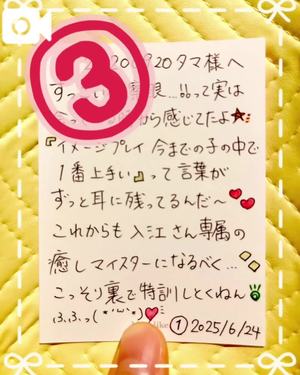 ③
20タマ様へ
良…!!って実は
から感じてたよ★
『イメージプレイ 今までの子の中で
1番上手い』って言葉が
ずっと耳に残ってるんだ〜
これからも 入江さん専属の
癒しマイスターになるべく…
こっそり裏で特訓しとくねん
ふふっ(*'ω'*)
① 2025/6/24